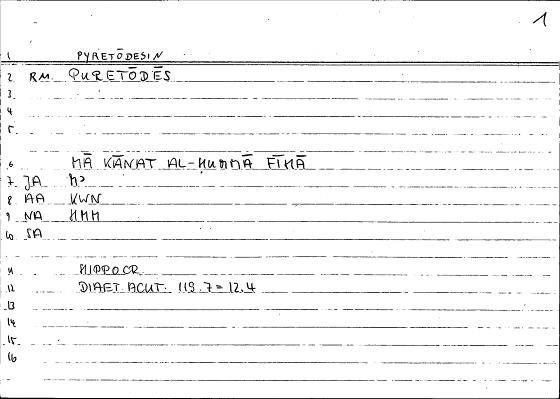 1
1 PYRETŌDESIN
2 RM. PURETŌDĒS
3
4
5
6 MĀ KĀNAT AL-HUMMĀ FĪHĀ
7 JA M>
8 AA KWN
9 NA HMM
10 SA
11 HIPPOCR.
12 DIAET. ACUT. 119.7 = 12.4
13
14
15
16